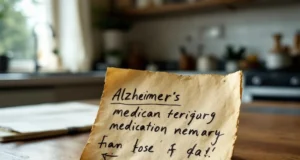 Alzheimer's
medican terigurg
medication nemary
fian fose f dat!